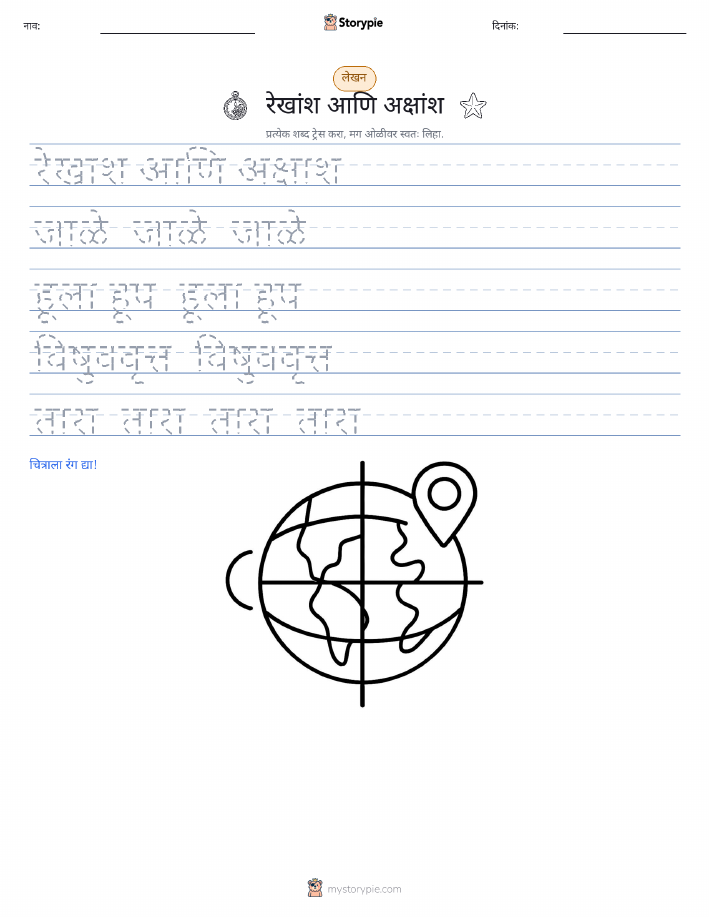 नाव:
Storypie
दिनांक:
लेखन
रेखांश आणि अक्षांश
प्रत्येक शब्द ट्रेस करा, मग ओळीवर स्वतः लिहा.
रेखांश आणि अक्षांश
जाळे जाळे जाळे
हूला हूप हूला हूप
विषुववृत्त विषुववृत्त
तारा तारा तारा तारा
चित्राला रंग द्या!
mystorypie.com